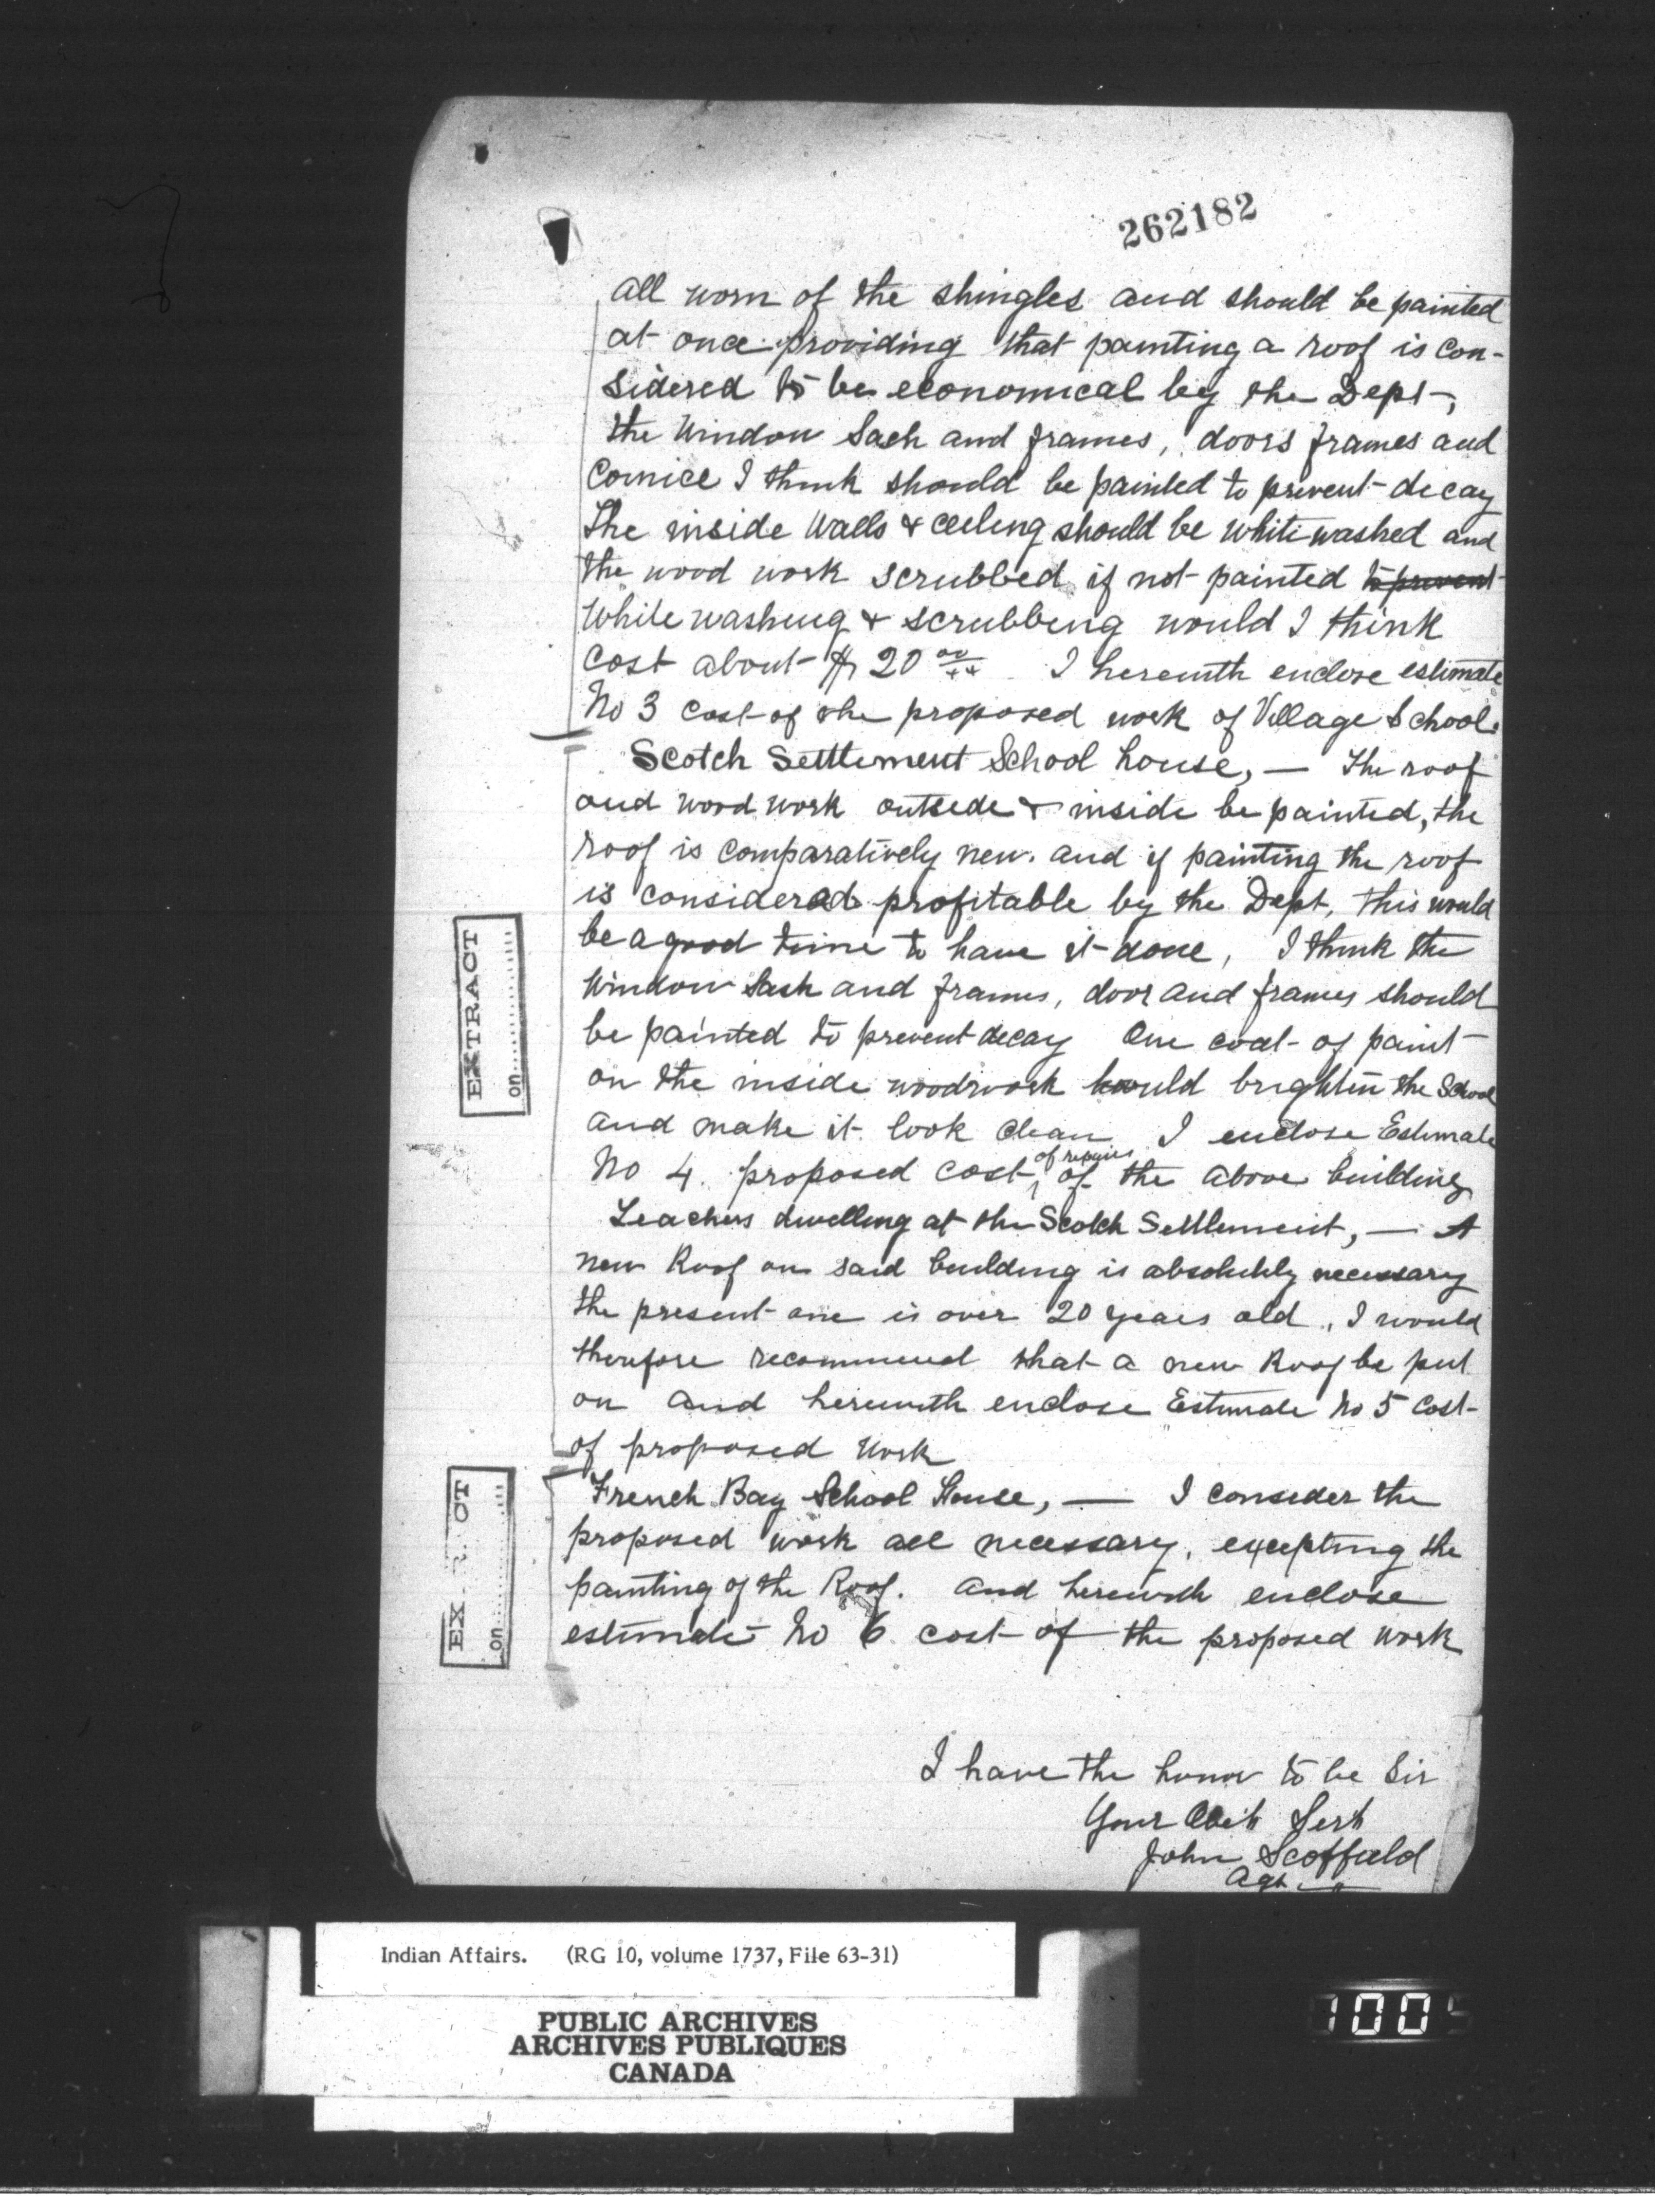 262182
all worn of the shingles and should be painted
at once providing that painting a roof is con-
sidered to be economical by the Dept,
the Window Sash and frames, doors frames and
Cornice I think should be painted to prevent decay
The inside Walls & ceiling should be white washed and
the wood work scrubbed if not painted to prevent
White washing & scrubbing would I think
cost about $20 00/xx I herewith enclose estimate
No 3 cost of the proposed work of Village School.
Scotch Settlement School house, — The roof
and wood work outside & inside be painted, the
roof is comparatively new. and if painting the roof
is considered profitable by the Dept, this would
be a good time to have it done, I think the
Window Sash and frames, door and frames should
be painted to prevent decay One coat of paint
on the inside woodwork would brighten the School
and make it look clean I enclose Estimate
No 4. proposed cost of repairs of the above building
Teachers dwelling at the Scotch Settlement, — A
new Roof on said building is absolutely necessary
the present one is over 20 years old, I would
therefore recommend that a new Roof be put
on and herewith enclose Estimate No 5 Cost
of proposed Work
French Bay School House, — I consider the
proposed work all necessary, excepting the
painting of the Roof. and herewith enclose
estimate No 6 cost of the proposed work
I have the honor to be Sir
Your Obdt Servt
John Scoffield
Agt
EXTRACT
on
EX R CT
on
Indian Affairs. (RG 10, volume 1737, File 63-31)
PUBLIC ARCHIVES
ARCHIVES PUBLIQUES
CANADA